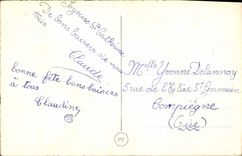 Joyeuse Ste Catherine
De bons baisers de nous
tous
Claude
bonne fête bons baisers
à tous
Claudine
Melle Yvonne Delannoy
5 rue de l'Eglise St Germain
Compiègne
(Oise)
PE